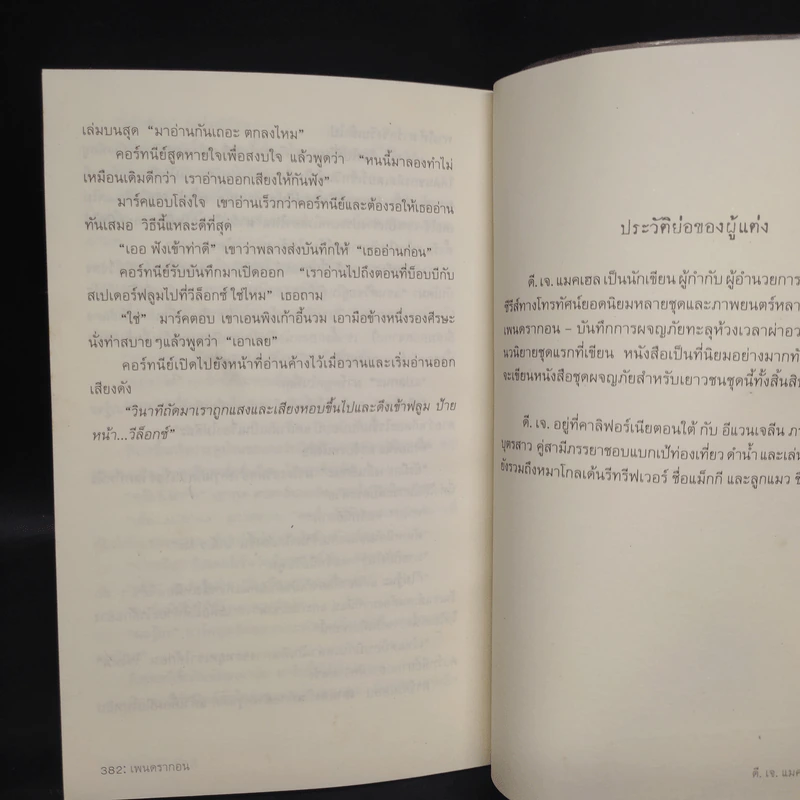 เล่มบนสุด “มาอ่านกันเถอะ ตกลงไหม”
คอร์ทนีย์สูดหายใจเพื่อสงบใจ แล้วพูดว่า “หนนี้มาลองทำไม่
เหมือนเดิมดีกว่า เราอ่านออกเสียงให้กันฟัง”
มาร์คแอบโล่งใจ เขาอ่านเร็วกว่าคอร์ทนีย์และต้องรอให้เธออ่าน
ทันเสมอ วิธีนี้แหละดีที่สุด
“เออ ฟังเข้าท่าดี” เขาว่าพลางส่งบันทึกให้ “เธออ่านก่อน”
คอร์ทนีย์รับบันทึกมาเปิดออก “เราอ่านไปถึงตอนที่บ็อบบีกับ
สเปเดอร์ฟลูมไปที่วีล็อกซ์ ใช่ไหม” เธอถาม
“ใช่” มาร์คตอบ เขาเอนพิงเก้าอี้นวม เอามือข้างหนึ่งรองศีรษะ
นั่งท่าสบายๆแล้วพูดว่า “เอาเลย”
คอร์ทนีย์เปิดไปยังหน้าที่อ่านค้างไว้เมื่อวานและเริ่มอ่านออก
เสียงดัง
“วินาทีถัดมาเราถูกแสงและเสียงหอบขึ้นไปและดึงเข้าฟลูม ป้าย
หน้า...วีล็อกซ์”
382: เพนดรากอน
ประวัติย่อของผู้แต่ง
ดี. เจ. แมคเฮล เป็นนักเขียน ผู้กำกับ ผู้อำนวยการ
ซีรีส์ทางโทรทัศน์ยอดนิยมหลายชุดและภาพยนตร์หลา
เพนดรากอน – บันทึกการผจญภัยทะลุห้วงเวลาผ่าอว
นวนิยายชุดแรกที่เขียน หนังสือเป็นที่นิยมอย่างมากทั
จะเขียนหนังสือชุดผจญภัยสำหรับเยาวชนชุดนี้ทั้งสิ้นสิ
ดี. เจ. อยู่ที่คาลิฟอร์เนียตอนใต้ กับ อีแวนเจลีน ภร
บุตรสาว คู่สามีภรรยาชอบแบกเป้ท่องเที่ยว ดำน้ำ และเล่น
ยังรวมถึงหมาโกลเด้นรีทรีฟเวอร์ ชื่อแม็กกี และลูกแมว ชื
ดี. เจ. แมค